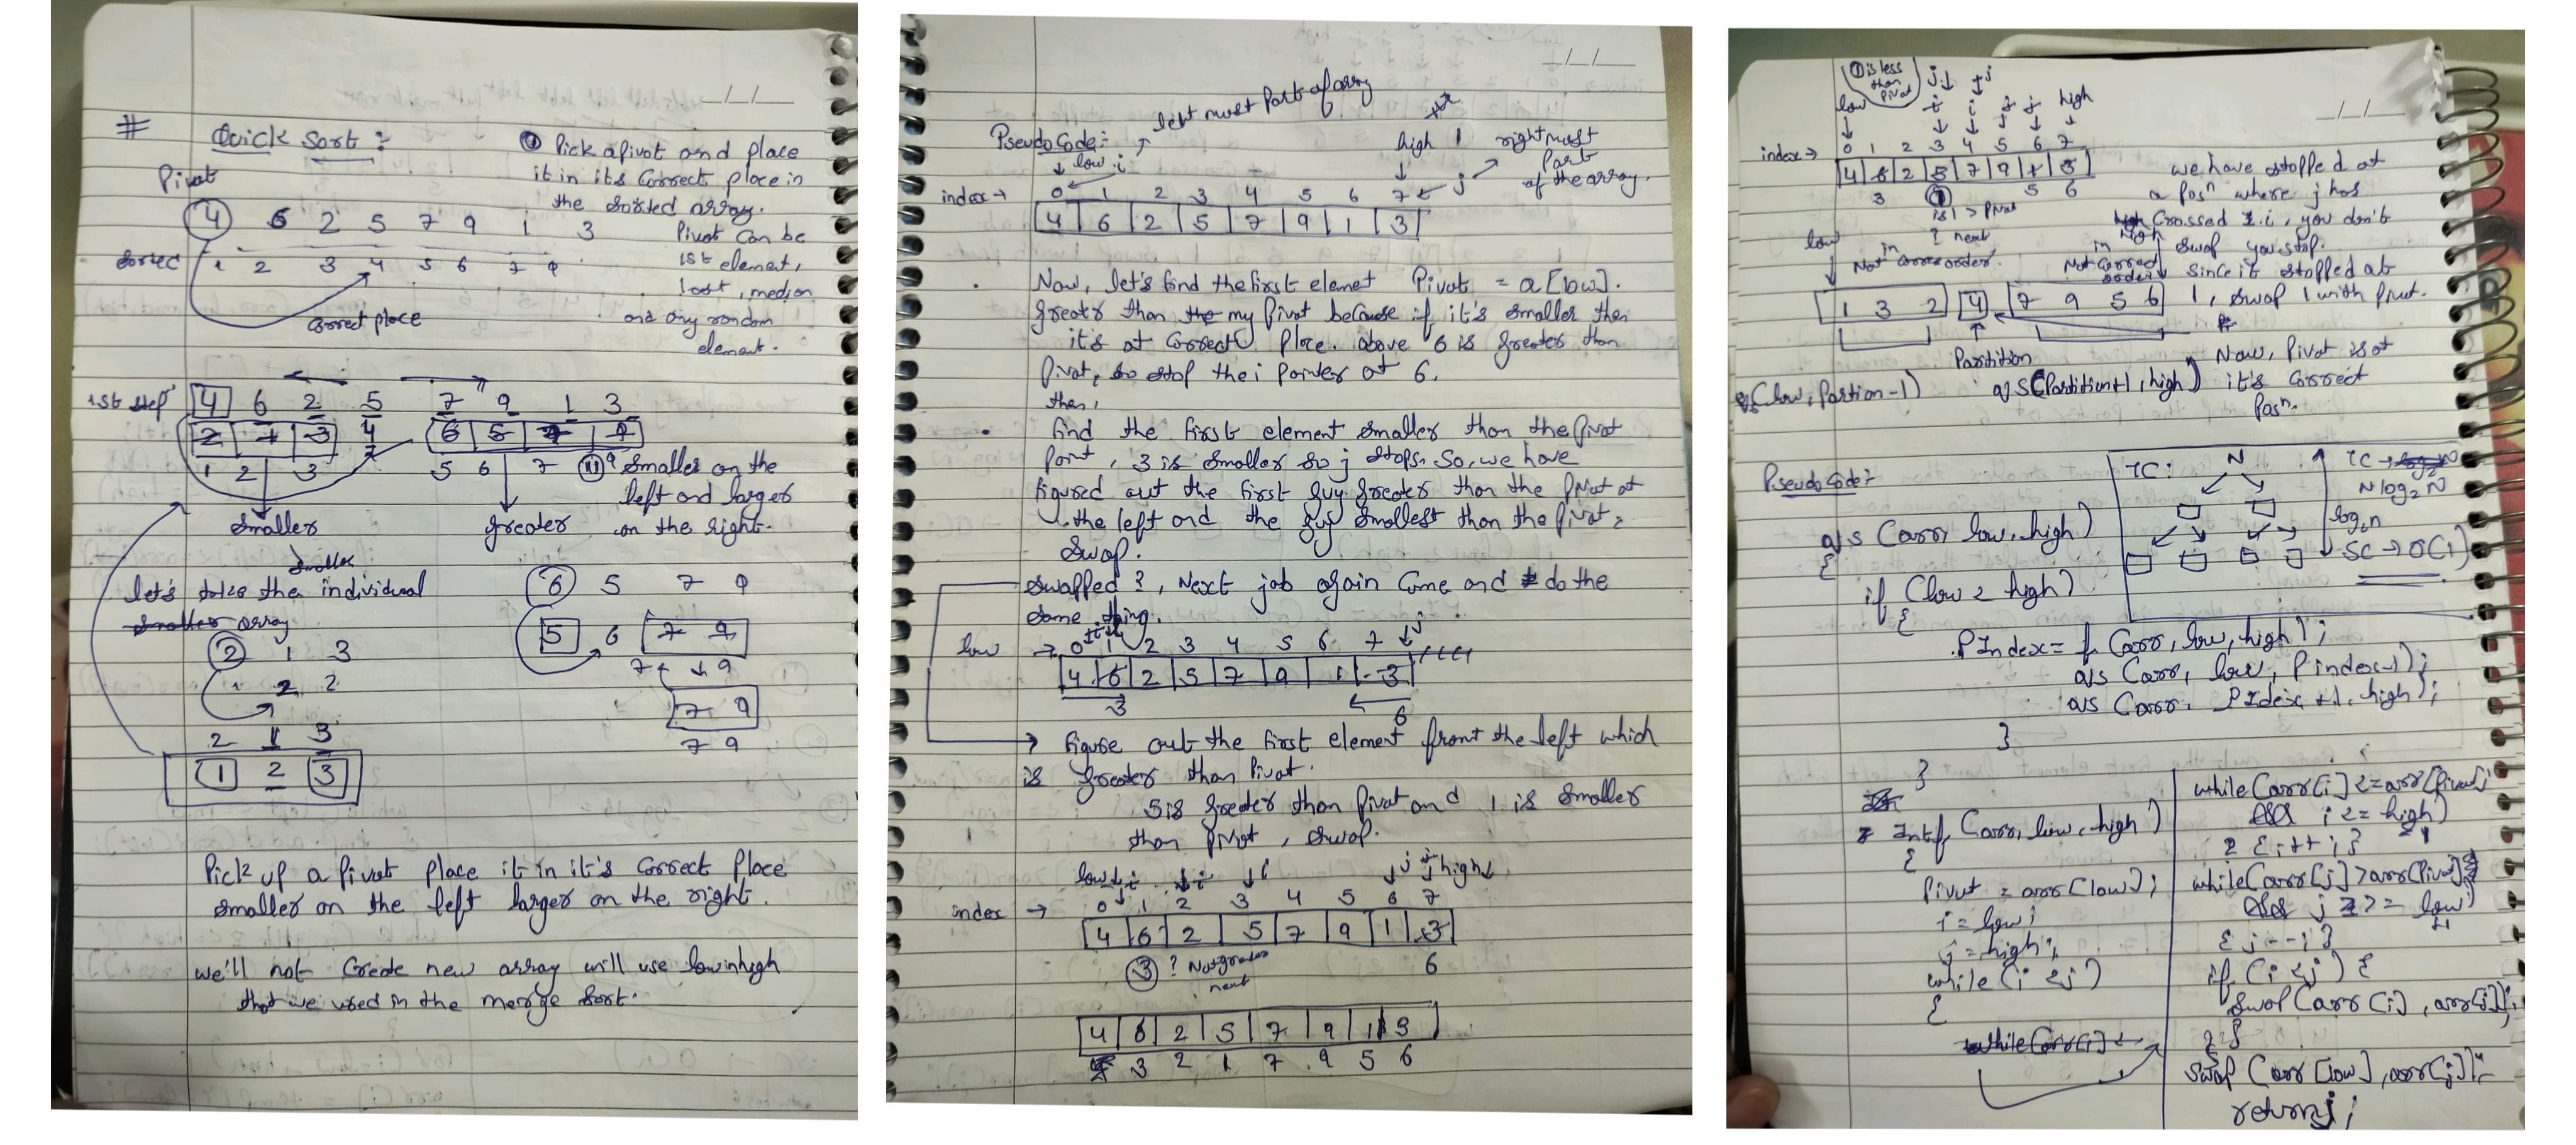 __/__/__
# Quick Sort :
① Pick a pivot and place
it in its correct place in
the sorted array.
Pivot can be
1st element,
last, median
and any random
element.
Pivot
4 6 2 5 7 9 1 3
1 2 3 4 5 6 7 9
correct place
1st step
4 6 2 5 7 9 1 3
2 1 3 4 6 5 7 9
1 2 3 5 6 7 9
Smaller
greater
⑪ Smaller on the
left and larger
on the right.
let's take the smaller individual
array
2 1 3
1 2 3
1 2 3
6 5 7 9
5 6 7 9
7 9
7 9
7 9
Pick up a pivot place it in it's correct place
smaller on the left larger on the right.
we'll not create new array will use low in high
that we used in the merge sort.
__/__/__
left most part of array
Pseudo Code :-
low i
high
right most
part
of the array.
index → 0 1 2 3 4 5 6 7 ← j
4 6 2 5 7 9 1 3
Now, let's find the first elemet Pivot = a[low].
greater than the my pivot because if it's smaller then
it's at correct place. above 6 is greater than
pivot, so stop the i pointer at 6.
then,
find the first element smaller than the pivot
point, 3 is smaller so j stops. So, we have
figured out the first guy greater than the pivot at
the left and the guy smallest than the pivot,
swap.
swapped ?, Next job again come and do the
same thing.
low → 0 1 2 3 4 5 6 7 j
4 6 2 5 7 9 1 3
3 6
→ figure out the first element front the left which
is greater than Pivot.
5 is greater than pivot and 1 is smaller
than pivot, swap.
low i i i j j high
index → 0 1 2 3 4 5 6 7
4 6 2 5 7 9 1 3
③ ? Not greater 6
next
4 6 2 5 7 9 1 3
3 2 1 7 9 5 6
__/__/__
① is less
than
pivot
low high
index → 0 1 2 3 4 5 6 7
4 6 2 5 7 9 1 3
3 ① 5 6
is 1 > pivot
? next
we have stopped at
a posⁿ where j has
crossed i, you don't
swap you stop.
since it stopped at
1, swap 1 with pivot.
low
Not in correct order.
Not in correct
order
high
1 3 2 4 7 9 5 6
Partition
qs(low, Partion-1) qs(Partition+1, high)
Now, Pivot is at
it's correct
posⁿ.
Pseudo Code :-
TC : N
TC → log₂N
N log₂ N
log₂n
SC → O(1)
qs (arr, low, high)
{
if (low < high)
{
PIndex = f (arr, low, high);
qs (arr, low, Pindex-1);
qs (arr, PIdex +1, high);
}
}
Int f (arr, low, high)
{
pivot = arr [low];
i = low;
j = high;
while (i < j)
{
while (arr[i] <
while (arr[i] <= arr[pivot]
&& i <= high)
-1
{ i++; }
while (arr[j] > arr[Pivot]
&& j >= low)
+1
{ j--; }
if (i < j) {
swap (arr [i], arr[j]);
} }
swap (arr [low], arr[j]);
return j;